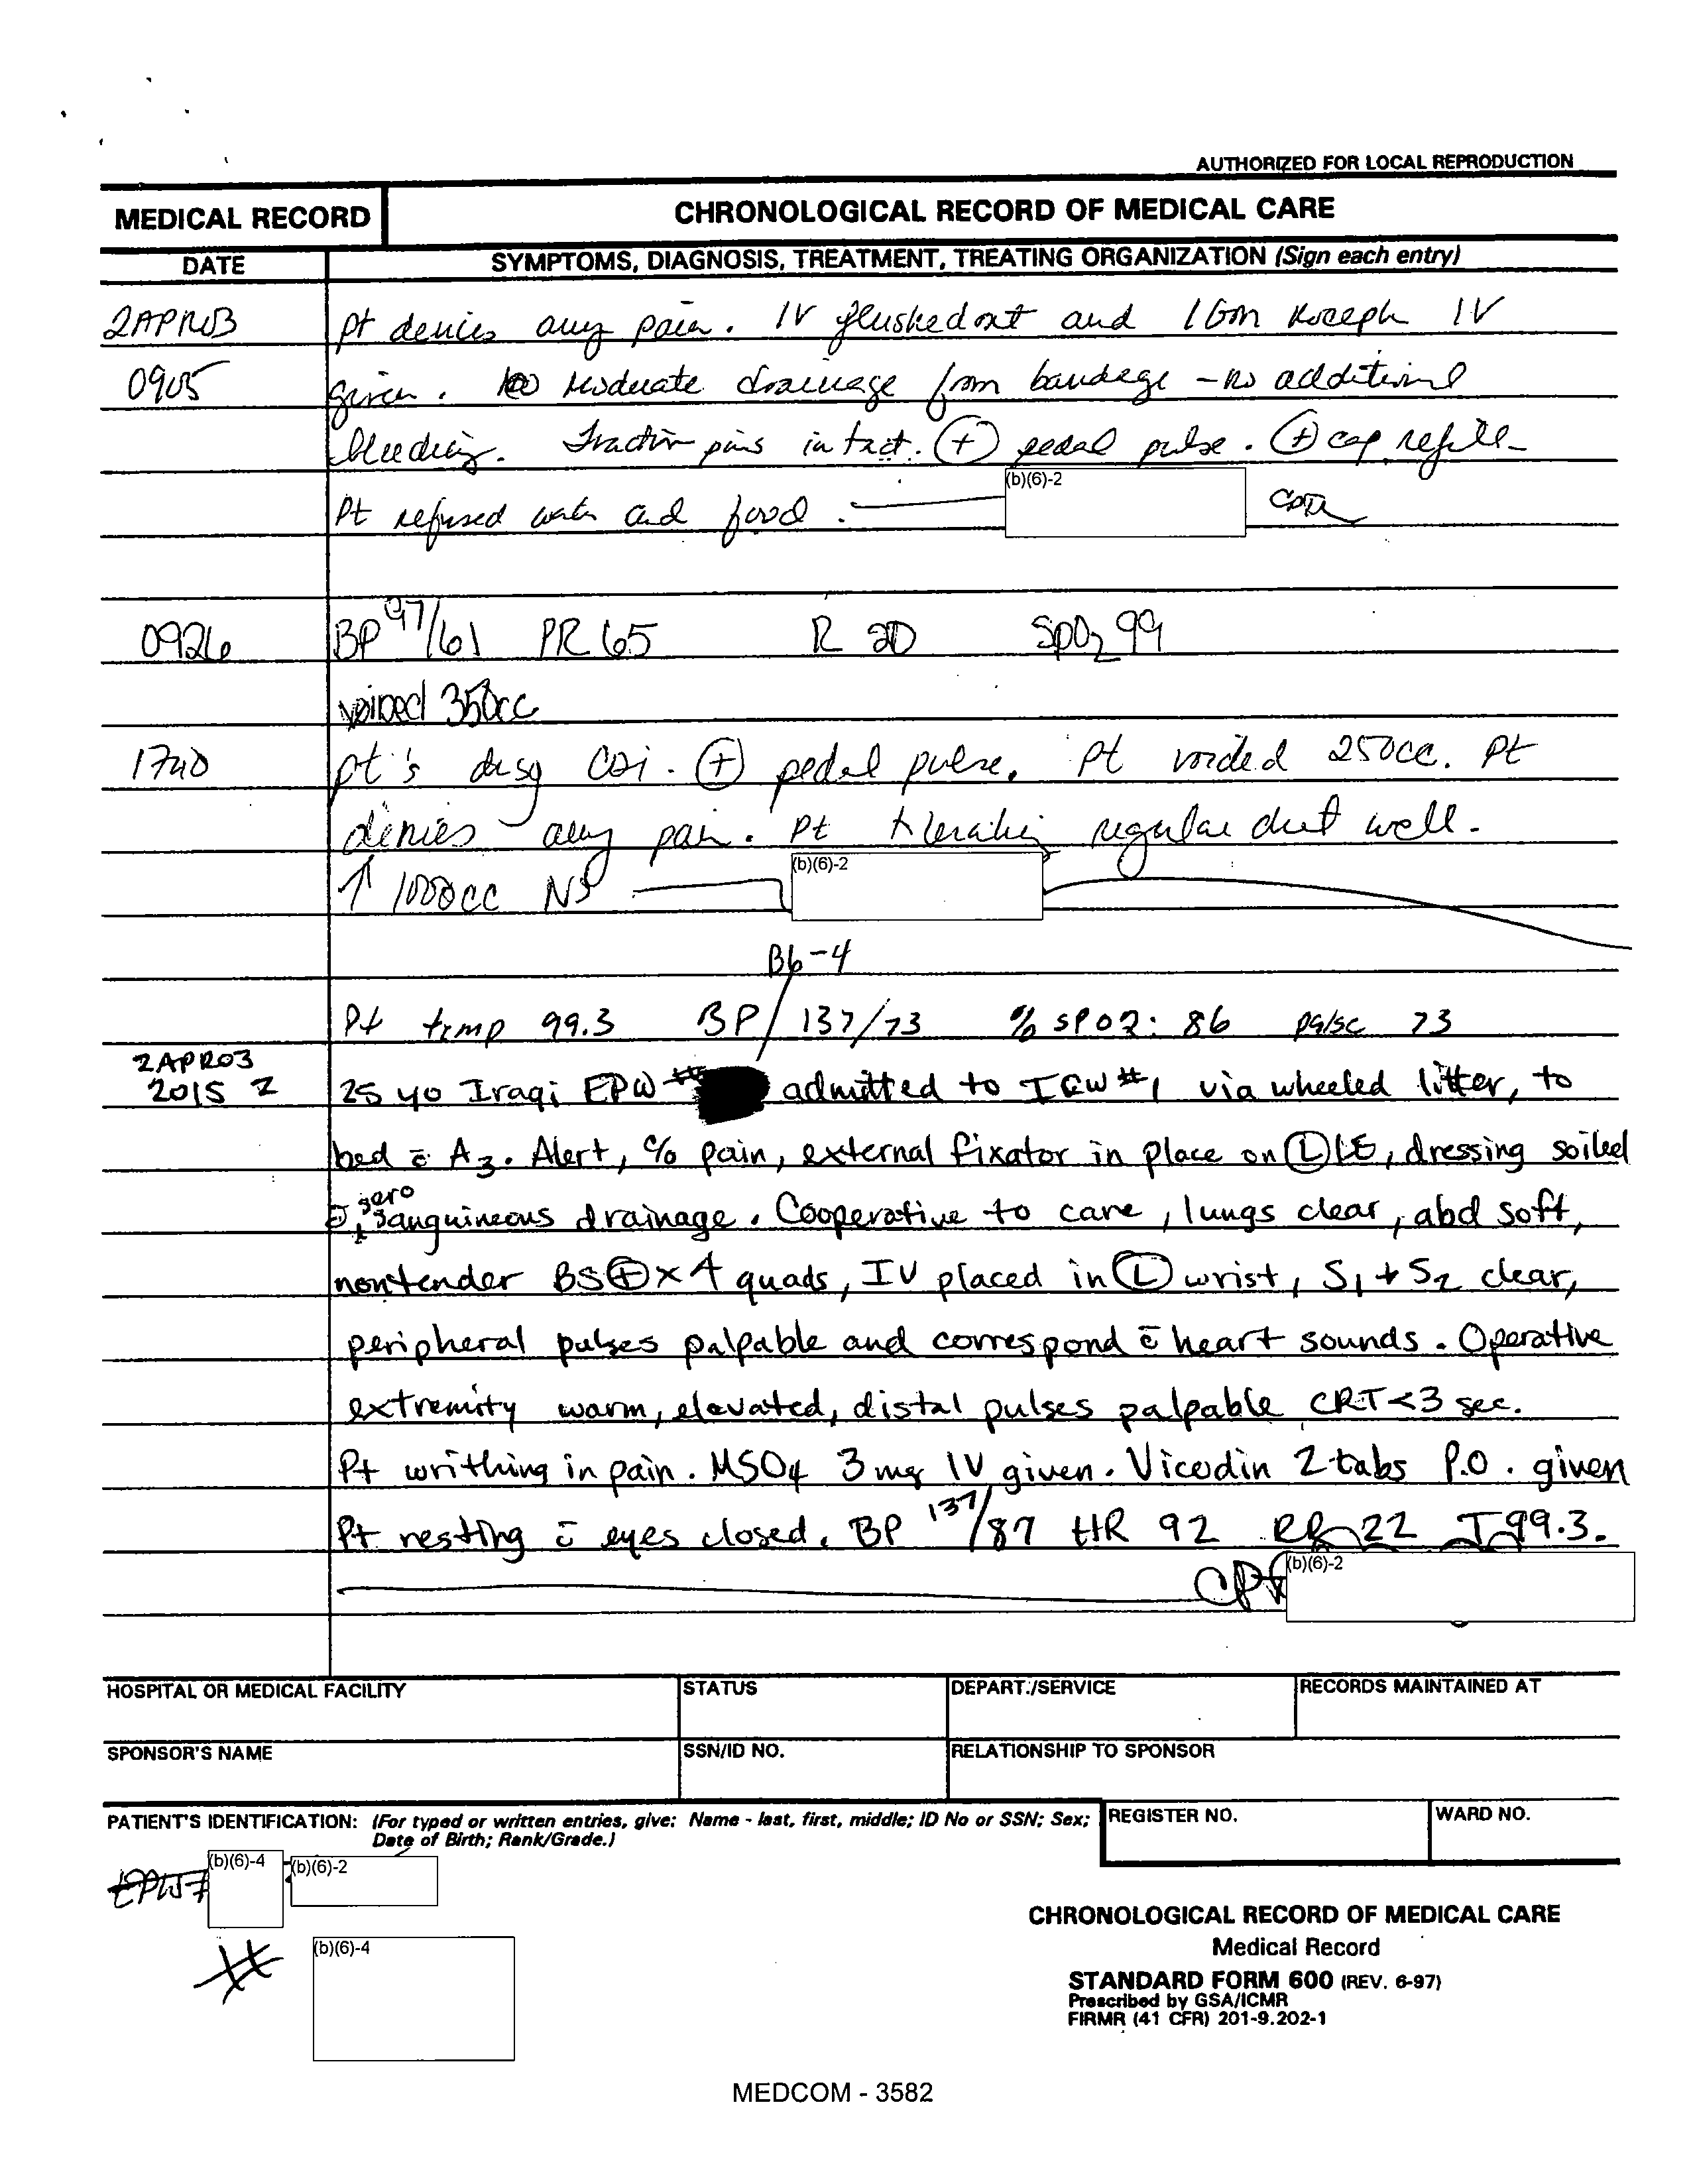 AUTHORIZED FOR LOCAL REPRODUCTION
MEDICAL RECORD
CHRONOLOGICAL RECORD OF MEDICAL CARE
DATE
SYMPTOMS, DIAGNOSIS, TREATMENT, TREATING ORGANIZATION (Sign each entry)
2APR03 pt denies any pain. IV flushed out and 1Gm Roceph IV
0905 given. Moderate drainage from bandage - no additional
bleeding. Traction pins intact. (+) pedal pulse. (+) cap refill -
Pt refused water and food.
(b)(6)-2
0926 BP 97/61 PR 65 R 20 SpO2 99
voided 350cc
1740 pt's dsg CDI. (+) pedal pulse. Pt voided 250cc. Pt
denies any pain. Pt tolerating regular diet well.
↑ 1000cc NS
(b)(6)-2
B6-4
Pt temp 99.3 BP/ 137/73 % SPO2: 86 73
2APR03
2015 Z 25 yo Iraqi EPW # admitted to ICW #1 via wheeled litter, to
bed c̄ A3. Alert, c/o pain, external fixator in place on (L) LE, dressing soiled
c̄ serosanguineous drainage. Cooperative to care, lungs clear, abd soft,
nontender BS (+) x 4 quads, IV placed in (L) wrist, S1 + S2 clear,
peripheral pulses palpable and correspond c̄ heart sounds. Operative
extremity warm, elevated, distal pulses palpable CRT <3 sec.
Pt writhing in pain. MSO4 3mg IV given. Vicodin 2 tabs P.O. given
Pt resting c̄ eyes closed. BP 137/87 HR 92 RR 22 T 99.3.
CPT (b)(6)-2
HOSPITAL OR MEDICAL FACILITY
STATUS
DEPART./SERVICE
RECORDS MAINTAINED AT
SPONSOR'S NAME
SSN/ID NO.
RELATIONSHIP TO SPONSOR
PATIENT'S IDENTIFICATION: (For typed or written entries, give: Name - last, first, middle; ID No or SSN; Sex;
Date of Birth; Rank/Grade.)
REGISTER NO.
WARD NO.
EPW# (b)(6)-4 (b)(6)-2
# (b)(6)-4
CHRONOLOGICAL RECORD OF MEDICAL CARE
Medical Record
STANDARD FORM 600 (REV. 6-97)
Prescribed by GSA/ICMR
FIRMR (41 CFR) 201-9.202-1
MEDCOM - 3582